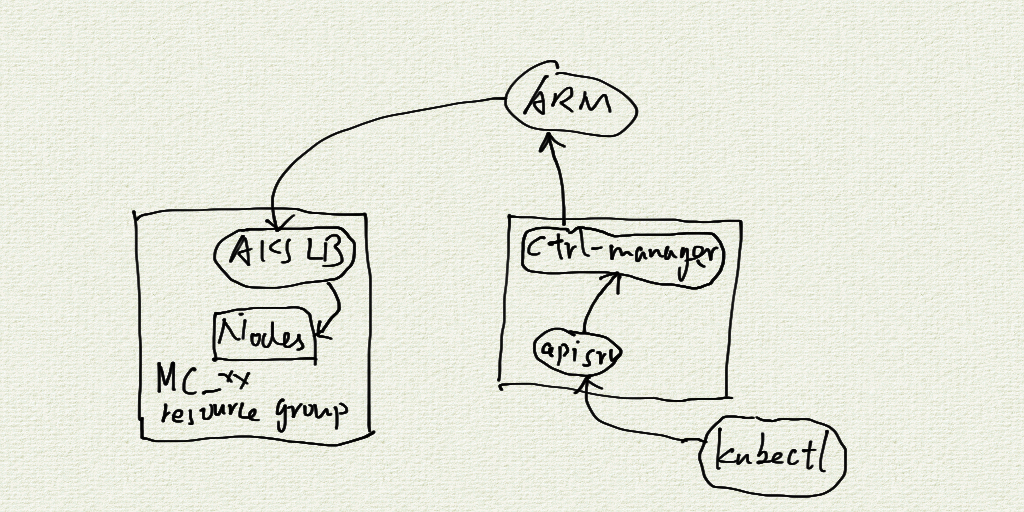 ARM
AKS LB
Nodes
MC_xx
resource group
ctrl-manager
apisrv
kubectl